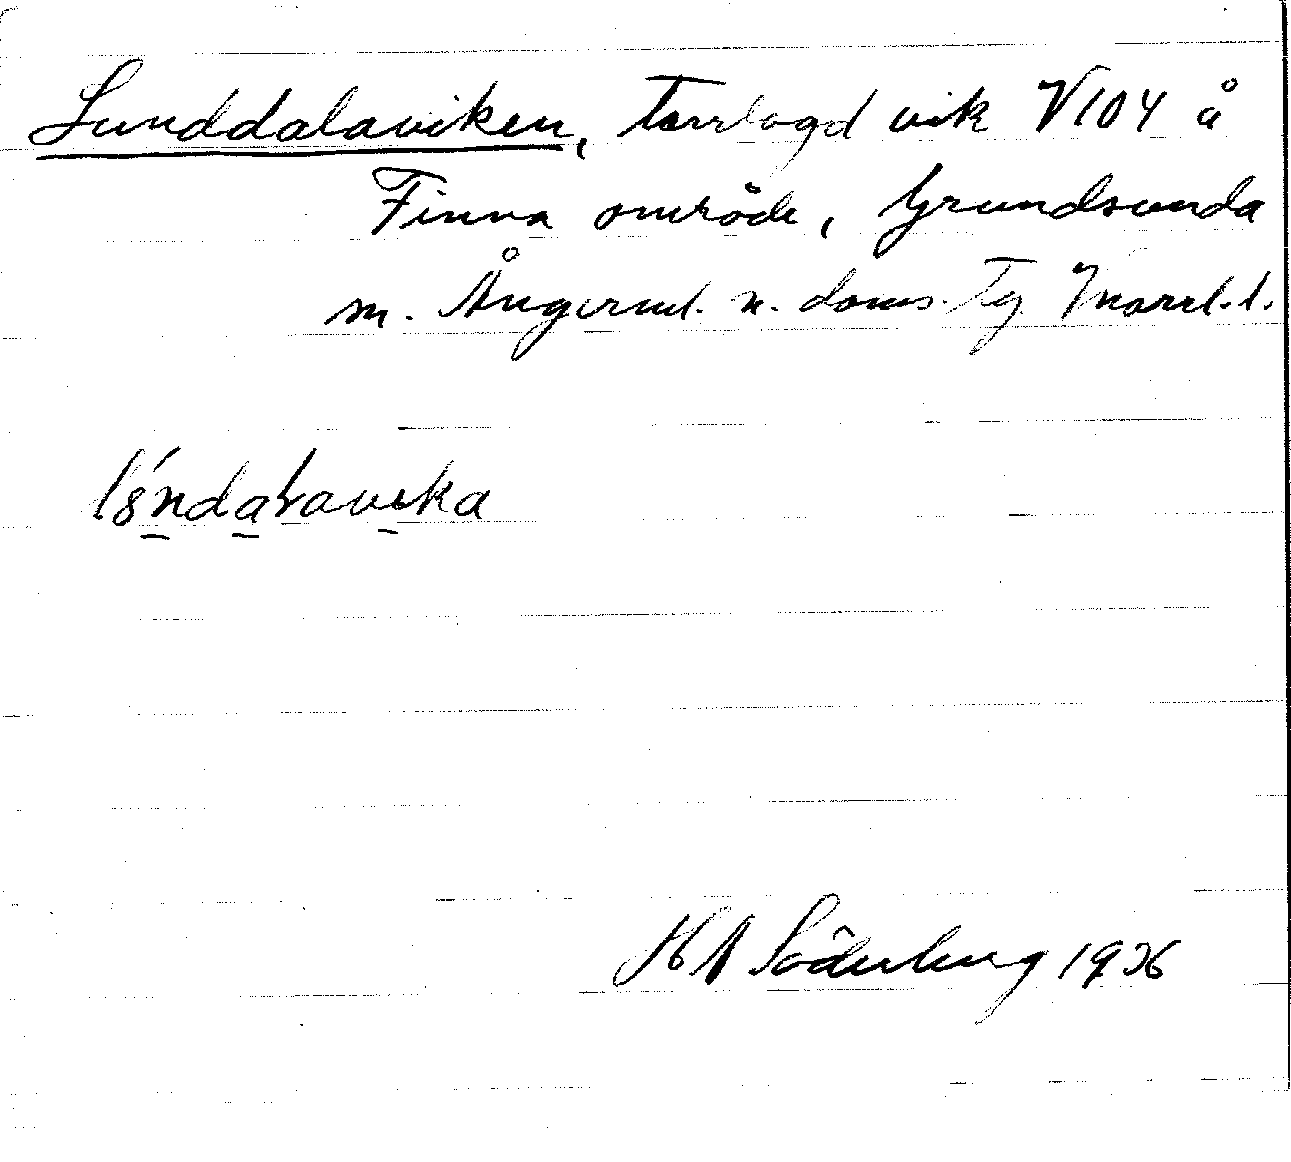 Lunddalaviken, torrlagd vik V104 å
Finna område, Grundsunda
sn. Ångerml. n. doms. Tg Norrl. l.
lȣ́ndaɽavika
H A Söderberg 1936